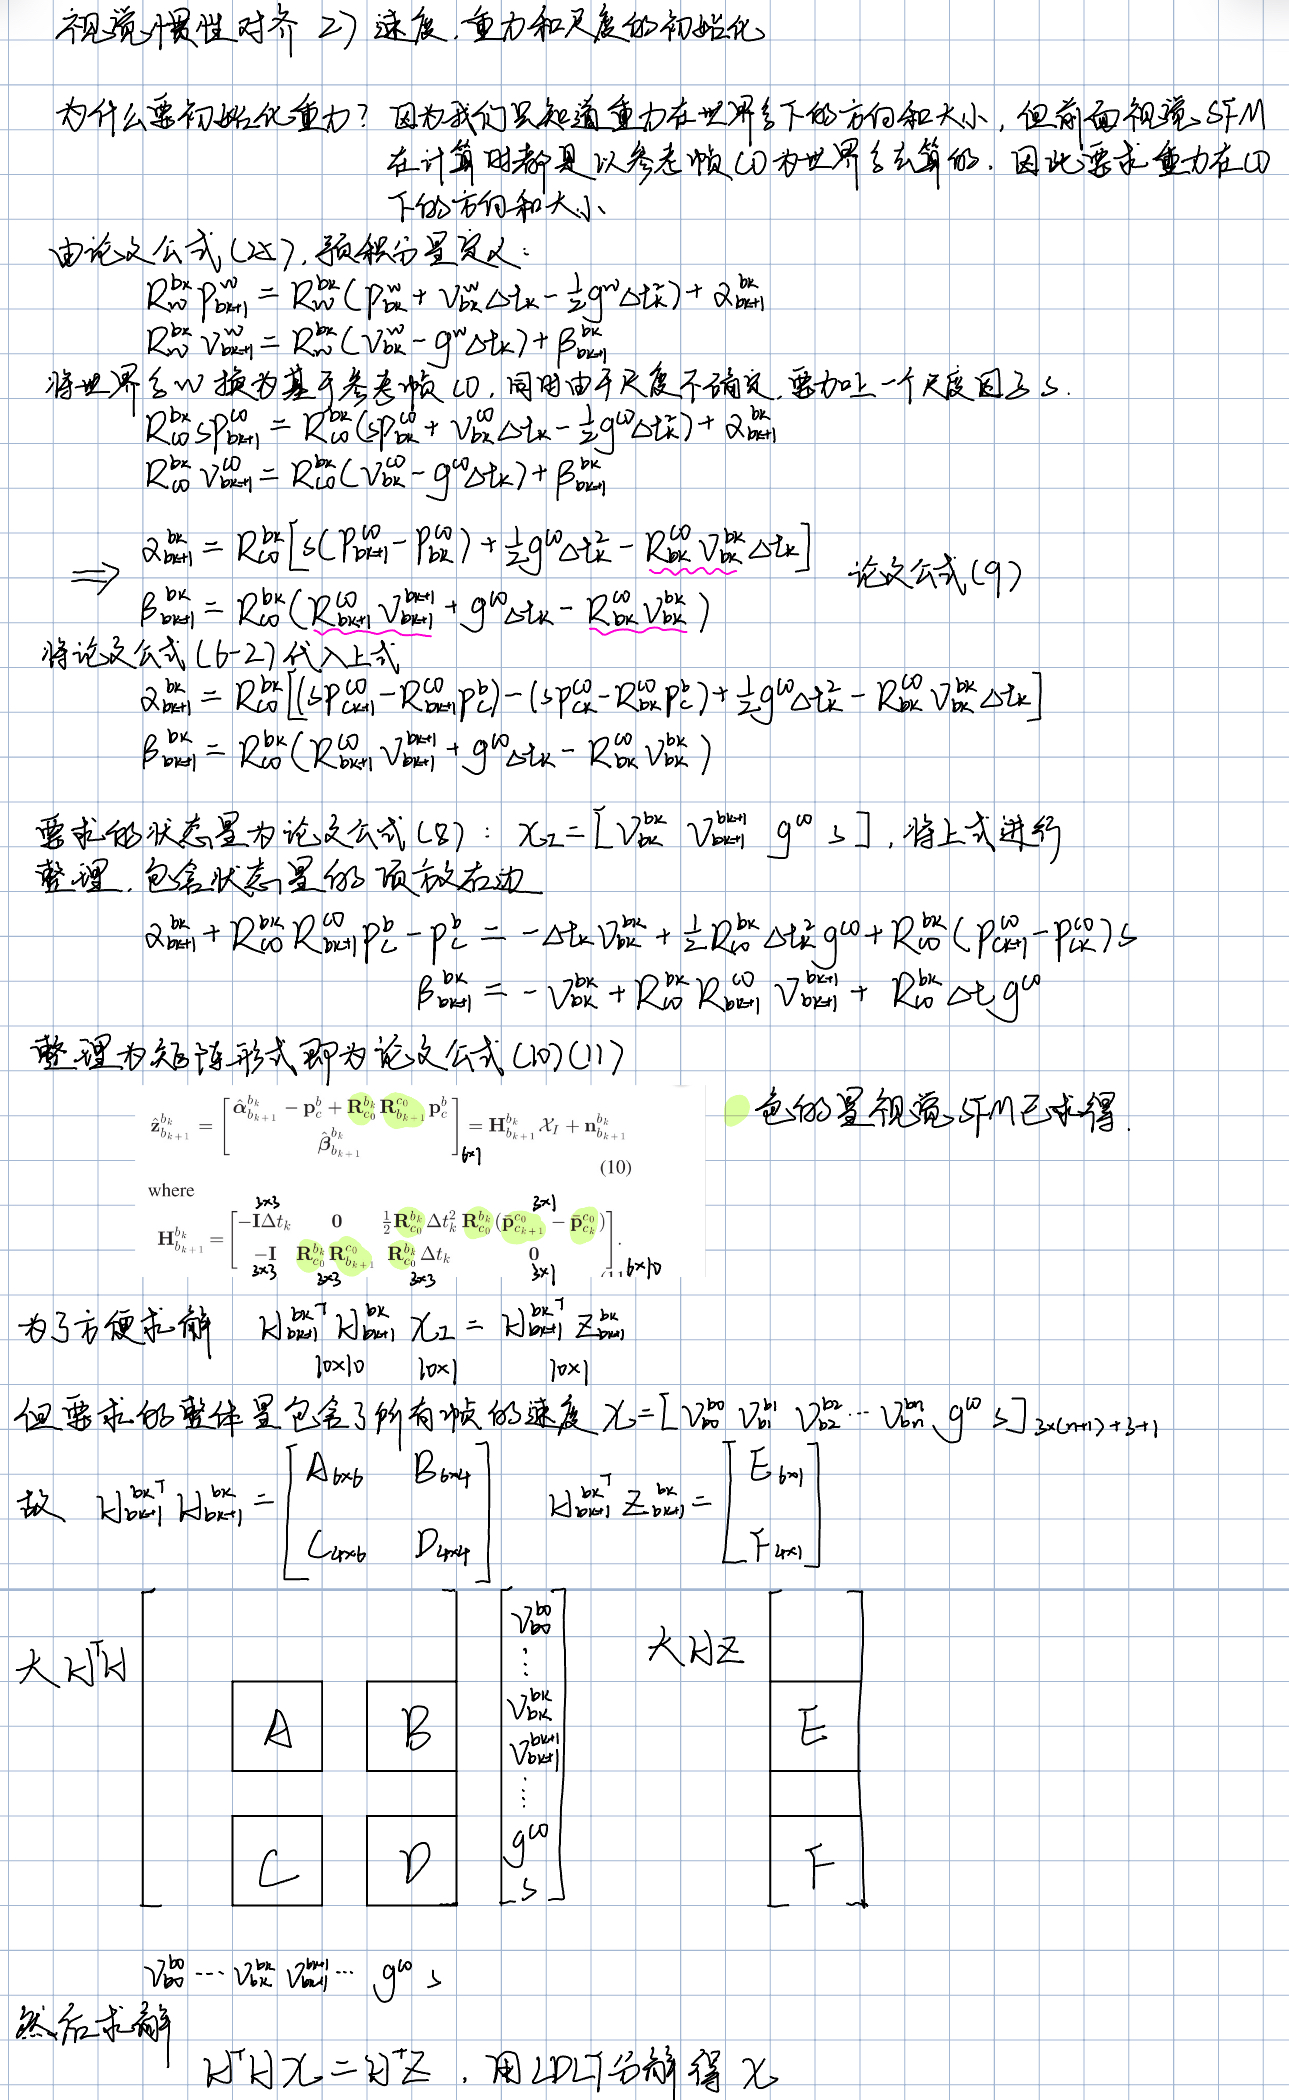 视觉惯性对齐 2) 速度、重力和尺度的初始化
为什么要初始化重力? 因为我们只知道重力在世界系下的方向和大小, 但前面视觉SFM
在计算时都是以参考帧C0为世界系去算的. 因此要求重力在C0
下的方向和大小
由论文公式(25), 预积分量定义:
R_w^{bk} p_{bk+1}^w = R_w^{bk}(p_{bk}^w + v_{bk}^w Δt_k - ½g^wΔt_k²) + α_{bk+1}^{bk}
R_w^{bk} v_{bk+1}^w = R_w^{bk}(v_{bk}^w - g^wΔt_k) + β_{bk+1}^{bk}
将世界系w换为基于参考帧C0, 同时由于尺度不确定, 要加上一个尺度因子s.
R_{c0}^{bk} s p_{bk+1}^{c0} = R_{c0}^{bk}(s p_{bk}^{c0} + v_{bk}^{c0}Δt_k - ½g^{c0}Δt_k²) + α_{bk+1}^{bk}
R_{c0}^{bk} v_{bk+1}^{c0} = R_{c0}^{bk}(v_{bk}^{c0} - g^{c0}Δt_k) + β_{bk+1}^{bk}
⇒ α_{bk+1}^{bk} = R_{c0}^{bk}[s(p_{bk+1}^{c0} - p_{bk}^{c0}) + ½g^{c0}Δt_k² - R_{bk}^{c0} v_{bk}^{bk} Δt_k] 论文公式(9)
β_{bk+1}^{bk} = R_{c0}^{bk}(R_{bk+1}^{c0} v_{bk+1}^{bk+1} + g^{c0}Δt_k - R_{bk}^{c0} v_{bk}^{bk})
将论文公式(6-2)代入上式
α_{bk+1}^{bk} = R_{c0}^{bk}[(s p_{ck+1}^{c0} - R_{bk+1}^{c0} p_c^b) - (s p_{ck}^{c0} - R_{bk}^{c0} p_c^b) + ½g^{c0}Δt_k² - R_{bk}^{c0} v_{bk}^{bk} Δt_k]
β_{bk+1}^{bk} = R_{c0}^{bk}(R_{bk+1}^{c0} v_{bk+1}^{bk+1} + g^{c0}Δt_k - R_{bk}^{c0} v_{bk}^{bk})
要求的状态量为论文公式(8): χ_I = [v_{bk}^{bk} v_{bk+1}^{bk+1} g^{c0} s], 将上式进行
整理, 包含状态量的项放右边
α_{bk+1}^{bk} + R_{c0}^{bk} R_{bk+1}^{c0} p_c^b - p_c^b = -Δt_k v_{bk}^{bk} + ½R_{c0}^{bk}Δt_k² g^{c0} + R_{c0}^{bk}(p_{ck+1}^{c0} - p_{ck}^{c0})s
β_{bk+1}^{bk} = -v_{bk}^{bk} + R_{c0}^{bk} R_{bk+1}^{c0} v_{bk+1}^{bk+1} + R_{c0}^{bk} Δt_k g^{c0}
整理为矩阵形式即为论文公式(10)(11)
ẑ_{b_{k+1}}^{b_k} = [α̂_{b_{k+1}}^{b_k} - p_c^b + R_{c_0}^{b_k} R_{b_{k+1}}^{c_0} p_c^b ; β̂_{b_{k+1}}^{b_k}]_{6×1} = H_{b_{k+1}}^{b_k} 𝒳_I + n_{b_{k+1}}^{b_k}
(10)
色的量视觉SFM已求得.
where
3×3 3×1
H_{b_{k+1}}^{b_k} = [-IΔt_k 0 ½R_{c_0}^{b_k}Δt_k² R_{c_0}^{b_k}(p̄_{c_{k+1}}^{c_0} - p̄_{c_k}^{c_0}) ; -I R_{c_0}^{b_k} R_{b_{k+1}}^{c_0} R_{c_0}^{b_k}Δt_k 0]. 6×10
3×3 3×3 3×3 3×1
为了方便求解 H_{bk+1}^{bk T} H_{bk+1}^{bk} χ_I = H_{bk+1}^{bk T} Z_{bk+1}^{bk}
10×10 10×1 10×1
但要求的整体量包含了所有帧的速度 χ = [v_{b0}^{b0} v_{b1}^{b1} v_{b2}^{b2} ⋯ v_{bn}^{bn} g^{c0} s]_{3×(n+1)+3+1}
故 H_{bk+1}^{bk T} H_{bk+1}^{bk} = [A_{6×6} B_{6×4} ; C_{4×6} D_{4×4}] H_{bk+1}^{bk T} Z_{bk+1}^{bk} = [E_{6×1} ; F_{4×1}]
大H^TH
A B
C D
v_{b0}^{b0}
⋮
v_{bk}^{bk}
v_{bk+1}^{bk+1}
⋮
g^{c0}
s
大HZ
E
F
v_{b0}^{b0} ⋯ v_{bk}^{bk} v_{bk+1}^{bk+1} ⋯ g^{c0} s
然后求解
H^THχ = H^TZ, 用LDLT分解得χ